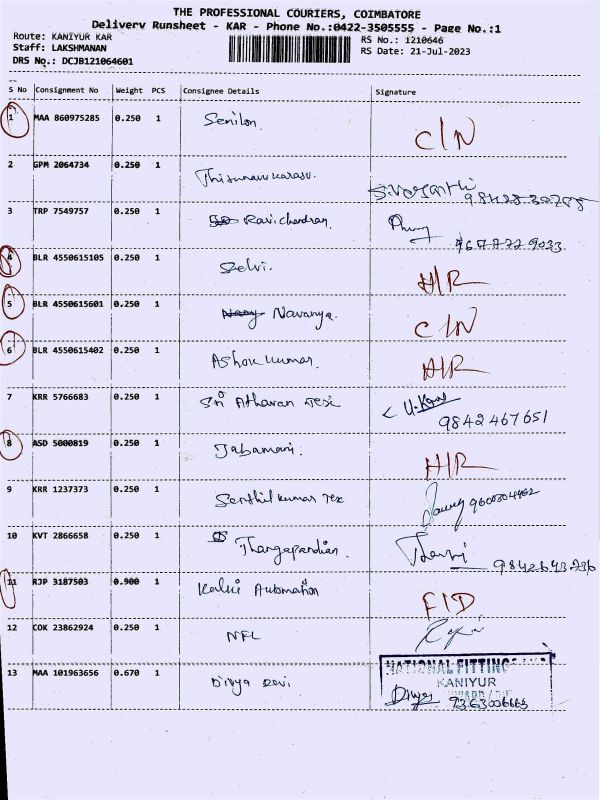 THE PROFESSIONAL COURIERS, COIMBATORE
Delivery Runsheet - KAR - Phone No.:0422-3505555 - Page No.:1
Route: KANIYUR KAR
RS No.: 1210646
Staff: LAKSHMANAN
RS Date: 21-Jul-2023
DRS No.: DCJB121064601
S No Consignment No Weight PCS Consignee Details Signature
1 MAA 860975285 0.250 1 Senilon. C/N
2 GPM 2064734 0.250 1
3 TRP 7549757 0.250 1 Ravichandran.
4 BLR 4550615105 0.250 1 Selvi. H/R
5 BLR 4550615601 0.250 1 Navanya. C/N
6 BLR 4550615402 0.250 1 Ashok kumar. H/R
7 KRR 5766683 0.250 1 Sri Atharan Tex
9842467651
8 ASD 5000819 0.250 1 Jabamani. H/R
9 KRR 1237373 0.250 1 Senthil kumar Tex
10 KVT 2866658 0.250 1 Thangapandian.
11 RJP 3187503 0.900 1 Kalki Automation F/D
12 COK 23862924 0.250 1 NFL
13 MAA 101963656 0.670 1 Divya Devi
NATIONAL FITTING
KANIYUR
Divya